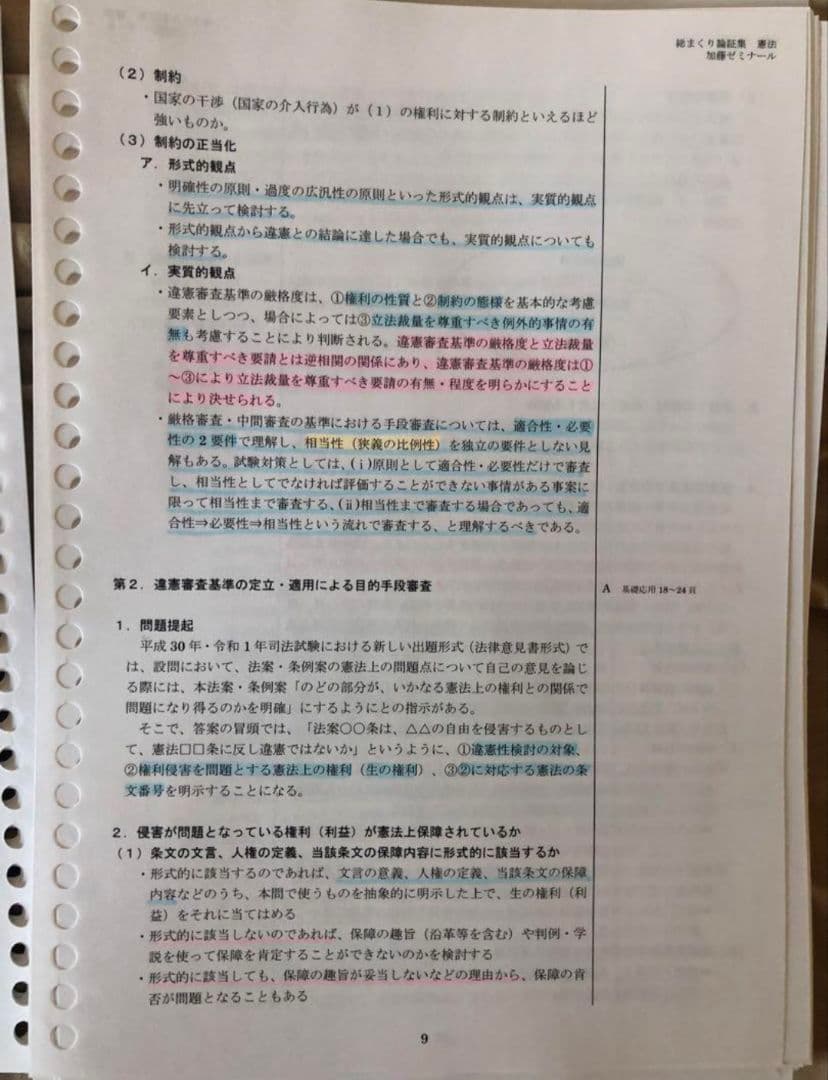 総まくり論証集 憲法
加藤ゼミナール
（２）制約
・国家の干渉（国家の介入行為）が（１）の権利に対する制約といえるほど
強いものか。
（３）制約の正当化
ア．形式的観点
・明確性の原則・過度の広汎性の原則といった形式的観点は、実質的観点
に先立って検討する。
・形式的観点から違憲との結論に達した場合でも、実質的観点についても
検討する。
イ．実質的観点
・違憲審査基準の厳格度は、①権利の性質と②制約の態様を基本的な考慮
要素としつつ、場合によっては③立法裁量を尊重すべき例外的事情の有
無も考慮することにより判断される。違憲審査基準の厳格度と立法裁量
を尊重すべき要請とは逆相関の関係にあり、違憲審査基準の厳格度は①
～③により立法裁量を尊重すべき要請の有無・程度を明らかにすること
により決せられる。
・厳格審査・中間審査の基準における手段審査については、適合性・必要
性の２要件で理解し、相当性（狭義の比例性）を独立の要件としない見
解もある。試験対策としては、(ⅰ)原則として適合性・必要性だけで審査
し、相当性としてでなければ評価することができない事情がある事案に
限って相当性まで審査する、(ⅱ)相当性まで審査する場合であっても、適
合性⇒必要性⇒相当性という流れで審査する、と理解するべきである。
第２．違憲審査基準の定立・適用による目的手段審査
A 基礎応用 18～24 頁
１．問題提起
平成 30 年・令和 1 年司法試験における新しい出題形式（法律意見書形式）で
は、設問において、法案・条例案の憲法上の問題点について自己の意見を論じ
る際には、本法案・条例案「のどの部分が、いかなる憲法上の権利との関係で
問題になり得るのかを明確」にするようにとの指示がある。
そこで、答案の冒頭では、「法案〇〇条は、△△の自由を侵害するものとし
て、憲法□□条に反し違憲ではないか」というように、①違憲性検討の対象、
②権利侵害を問題とする憲法上の権利（生の権利）、③②に対応する憲法の条
文番号を明示することになる。
２．侵害が問題となっている権利（利益）が憲法上保障されているか
（１）条文の文言、人権の定義、当該条文の保障内容に形式的に該当するか
・形式的に該当するのであれば、文言の意義、人権の定義、当該条文の保障
内容などのうち、本問で使うものを抽象的に明示した上で、生の権利（利
益）をそれに当てはめる
・形式的に該当しないのであれば、保障の趣旨（沿革等を含む）や判例・学
説を使って保障を肯定することができないのかを検討する
・形式的に該当しても、保障の趣旨が妥当しないなどの理由から、保障の肯
否が問題となることもある
9